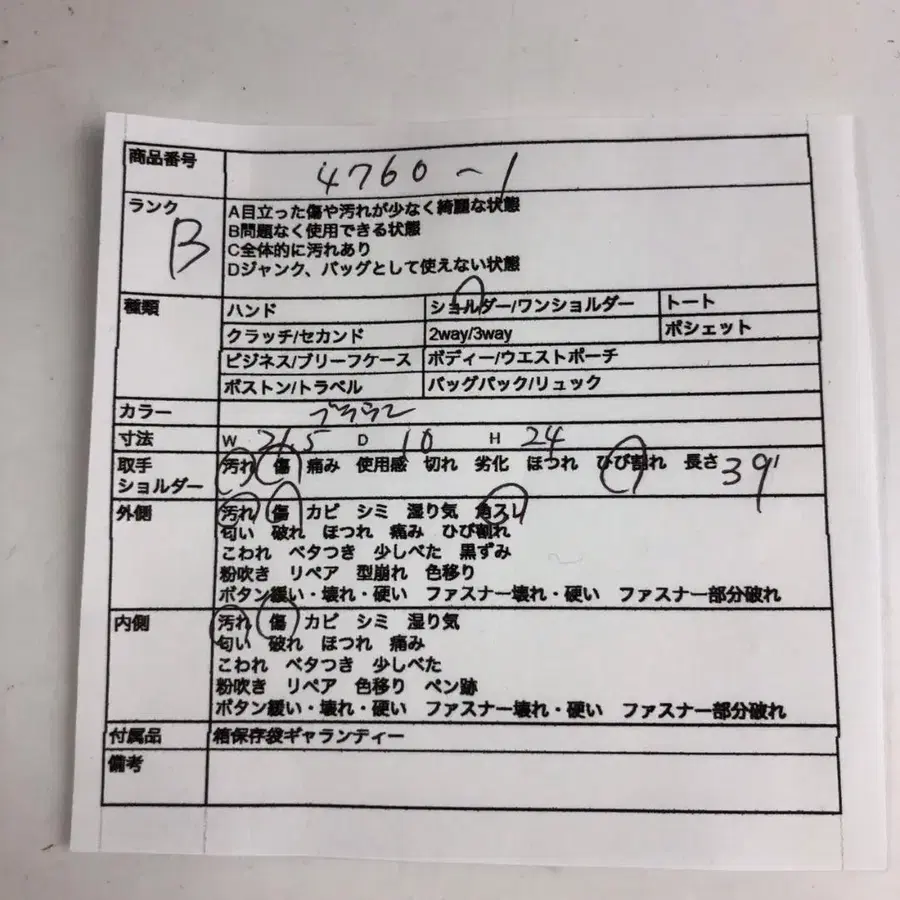 商品番号 4760-1
ランク B
A目立った傷や汚れが少なく綺麗な状態
B問題なく使用できる状態
C全体的に汚れあり
Dジャンク、バッグとして使えない状態
種類 ハンド ショルダー/ワンショルダー トート
クラッチ/セカンド 2way/3way ポシェット
ビジネス/ブリーフケース ボディー/ウエストポーチ
ボストン/トラベル バッグパック/リュック
カラー ブラウン
寸法 W 21.5 D 10 H 24
取手 汚れ 傷 痛み 使用感 切れ 劣化 ほつれ ひび割れ 長さ 39
ショルダー
外側 汚れ 傷 カビ シミ 湿り気 角スレ
匂い 破れ ほつれ 痛み ひび割れ
こわれ ベタつき 少しべた 黒ずみ
粉吹き リペア 型崩れ 色移り
ボタン緩い・壊れ・硬い ファスナー壊れ・硬い ファスナー部分破れ
内側 汚れ 傷 カビ シミ 湿り気
匂い 破れ ほつれ 痛み
こわれ ベタつき 少しべた
粉吹き リペア 色移り ペン跡
ボタン緩い・壊れ・硬い ファスナー壊れ・硬い ファスナー部分破れ
付属品 箱保存袋ギャランティー
備考